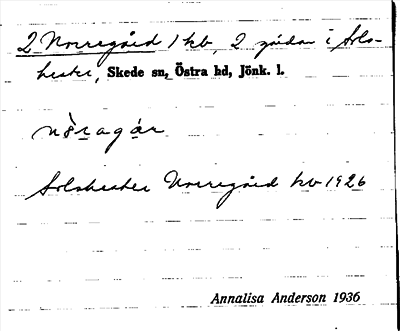 2 Norregård 1 kb, 2 gårdar i Sols-
hester, Skede sn, Östra hd, Jönk. l.
nò̀ragår
Solshester Norregård kb 1926
Annalisa Anderson 1936